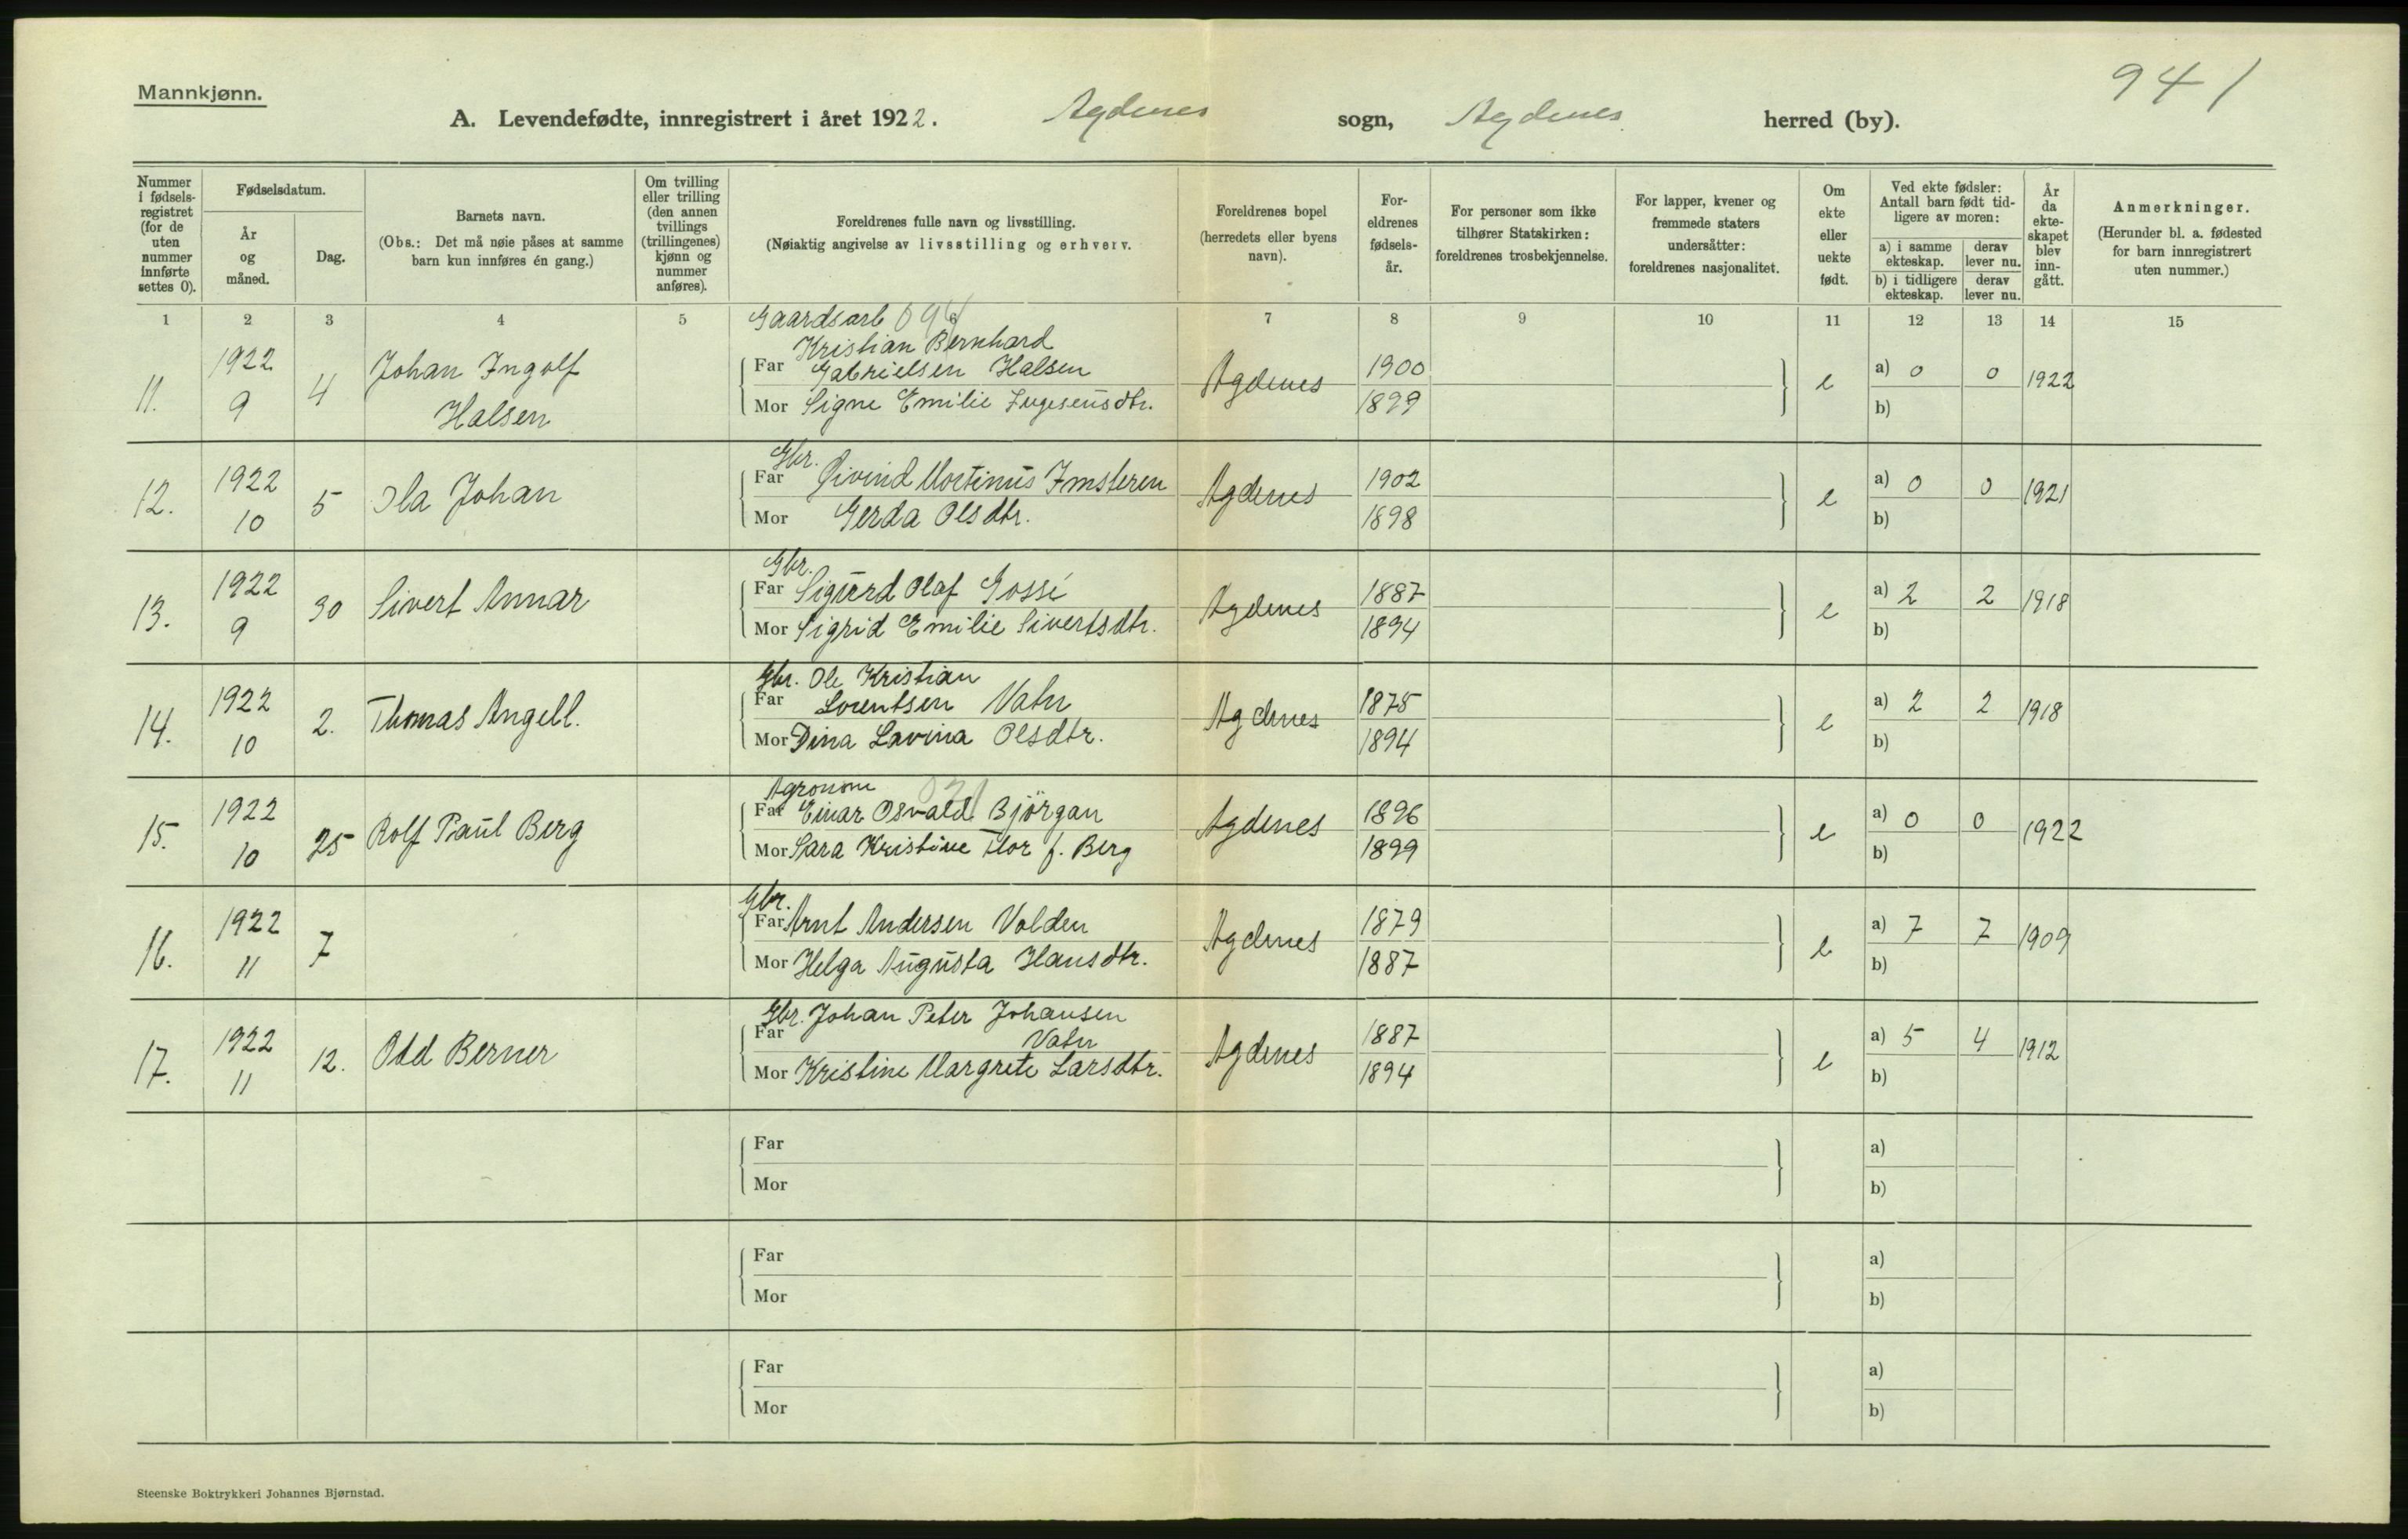 Mannkjønn.
941
A. Levendefødte, innregistrert i året 1922. Agdenes sogn, Agdenes herred (by).
Nummer i fødselsregistret (for de uten nummer innførte settes 0).
Fødselsdatum.
År og måned.
Dag.
Barnets navn.
(Obs.: Det må nøie påses at samme barn kun innføres én gang.)
Om tvilling eller trilling (den annen tvillings (trillingenes) kjønn og nummer anføres).
Foreldrenes fulle navn og livsstilling.
(Nøiaktig angivelse av livsstilling og erhverv.
Foreldrenes bopel (herredets eller byens navn).
Foreldrenes fødselsår.
For personer som ikke tilhører Statskirken: foreldrenes trosbekjennelse.
For lapper, kvener og fremmede staters undersåtter: foreldrenes nasjonalitet.
Om ekte eller uekte født.
Ved ekte fødsler: Antall barn født tidligere av moren:
a) i samme ekteskap. derav lever nu.
b) i tidligere ekteskap. derav lever nu.
År da ekteskapet blev inngått.
Anmerkninger.
(Herunder bl. a. fødested for barn innregistrert uten nummer.)
1 2 3 4 5 6 7 8 9 10 11 12 13 14 15
Gaardsarb
Kristian Bernhard
11. 1922 9 4 Johan Ingolf Halsen Far Gabrielsen Halsen Agdenes 1900 e a) 0 0 1922
Mor Signe Emilie Ingesensdtr. 1899 b)
Gbr.
12. 1922 10 5 Ola Johan Far Øivind Mortinus Imsteren Agdenes 1902 e a) 0 0 1921
Mor Gerda Olsdtr. 1898 b)
Gbr.
13. 1922 9 30 Sivert Annar Far Sigurd Olaf Gossé Agdenes 1887 e a) 2 2 1918
Mor Sigrid Emilie Sivertsdtr. 1894 b)
Gbr. Ole Kristian
14. 1922 10 2. Thomas Angell. Far Lorentsen Vatn Agdenes 1875 e a) 2 2 1918
Mor Dina Lavina Olsdtr. 1894 b)
Agronom
15. 1922 10 25 Rolf Paul Berg Far Einar Osvald Bjørgan Agdenes 1896 e a) 0 0 1922
Mor Sara Kristine Flor f. Berg 1899 b)
Gbr.
16. 1922 11 7 Far Arnt Andersen Volden Agdenes 1879 e a) 7 7 1909
Mor Helga Augusta Hansdtr. 1887 b)
Gbr. Johan Peter Johansen
17. 1922 11 12. Odd Berner Far Vatn Agdenes 1887 e a) 5 4 1912
Mor Kristine Margrete Larsdtr. 1894 b)
Far a)
Mor b)
Far a)
Mor b)
Far a)
Mor b)
Steenske Boktrykkeri Johannes Bjørnstad.